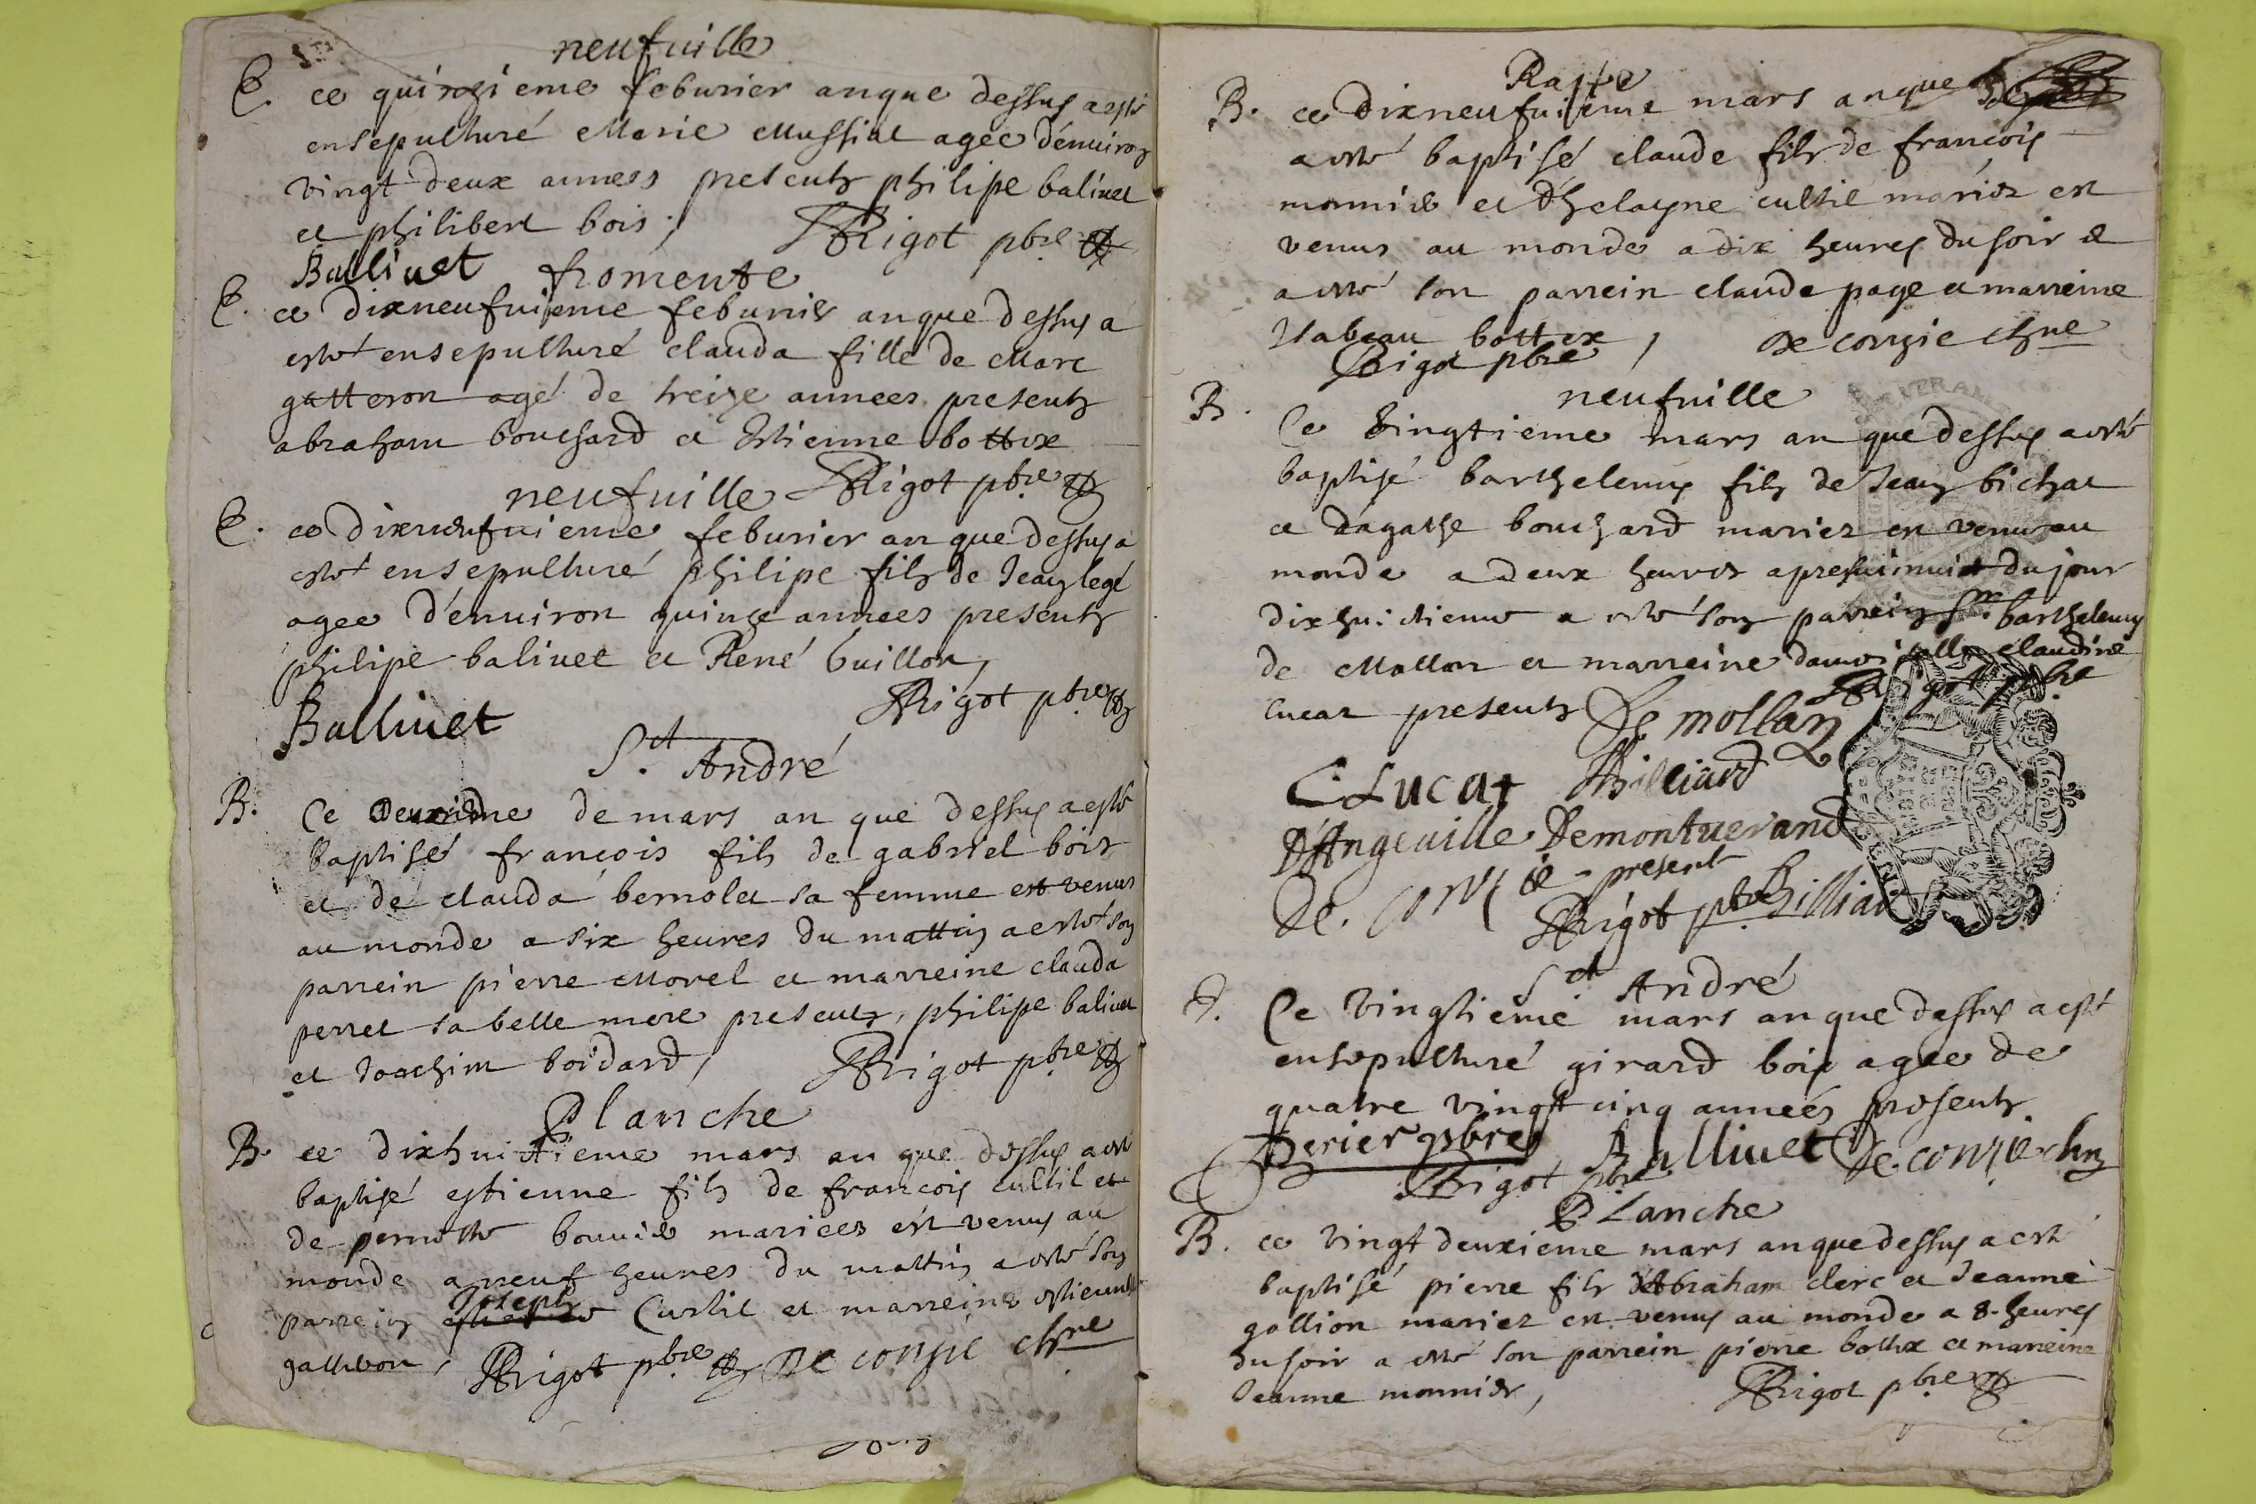 neufuille
E. ce quinzieme feburier an que dessus a esté
ensepulturé Marie Mussiat agée d'enuiron
vingt deux annees presents philipe baliuet
et philibert bois, Rigot pbre
Balliuet fromente
E. ce dixneufuieme feburier an que dessus a
esté ensepulturé clauda fille de Marc
gutteron agé de treize annees presents
abraham bouchard et Estienne bottex
neufuille Rigot pbre
E. ce dixneufuieme feburier an que dessus a
esté ensepulturé philipe fils de Jean legé
agee d'enuiron quinze annees presents
philipe baliuet et René Guillon,
Rigot pbre
Balliuet
St André
B. Ce deuxieme de mars an que dessus a esté
baptisé françois fils de gabriel bois
et de clauda bernolet sa femme est venus
au monde a six heures du mattin a esté son
parrein pierre Morel et marreine clauda
perret sa belle mere presents, philipe baliuet
et Joachim boidard, Rigot pbre
Planche
B. ce dixhuitieme mars an que dessus a esté
baptisé estienne fils de françois cultil et
de pernette bouuie mariees est venus au
monde a neuf heures du mattin a esté son
Joseph
parrein Curtil et marreine estiennette
gallion, Rigot pbre De conzié chne
Raffe
B. ce dixneufuieme mars an que
a esté baptisé claude fils de françois
monnie et d'helayne cultil mariez est
venus au monde a dix heures du soir et
a esté son parrein claude page et marreine
Isabeau bottex, De conzie chne
Rigot pbre
neufuille
B. Ce Vingtieme mars an que dessus a esté
baptisé barthelemy fils de Jean bichat
et d'agathe bouchard mariez est venus au
monde a deux heures apres minuit du jour
dixhuictieme a esté son parrein Sr. barthelemy
de Mollan et marreine damoiselle claudine
Lucat presents Rigot pbre
De mollan
C Lucat Billiard
D'Angeuille Demontuerand
De. conzié present
Rigot pbre Billiard
St André
E. Ce Vingtieme mars an que dessus a esté
ensepulturé girard bois agee de
quatre vingt cinq années presents
Perier pbre Balliuet De. conzie chne
Rigot pbre
Planche
B. ce vingt deuxieme mars an que dessus a esté
baptisé pierre fils d'Abraham clerc et Jeanne
gallion mariez est venus au monde a 8. heures
du soir a esté son parrein pierre bottex et marreine
Jeanne monnier, Rigot pbre